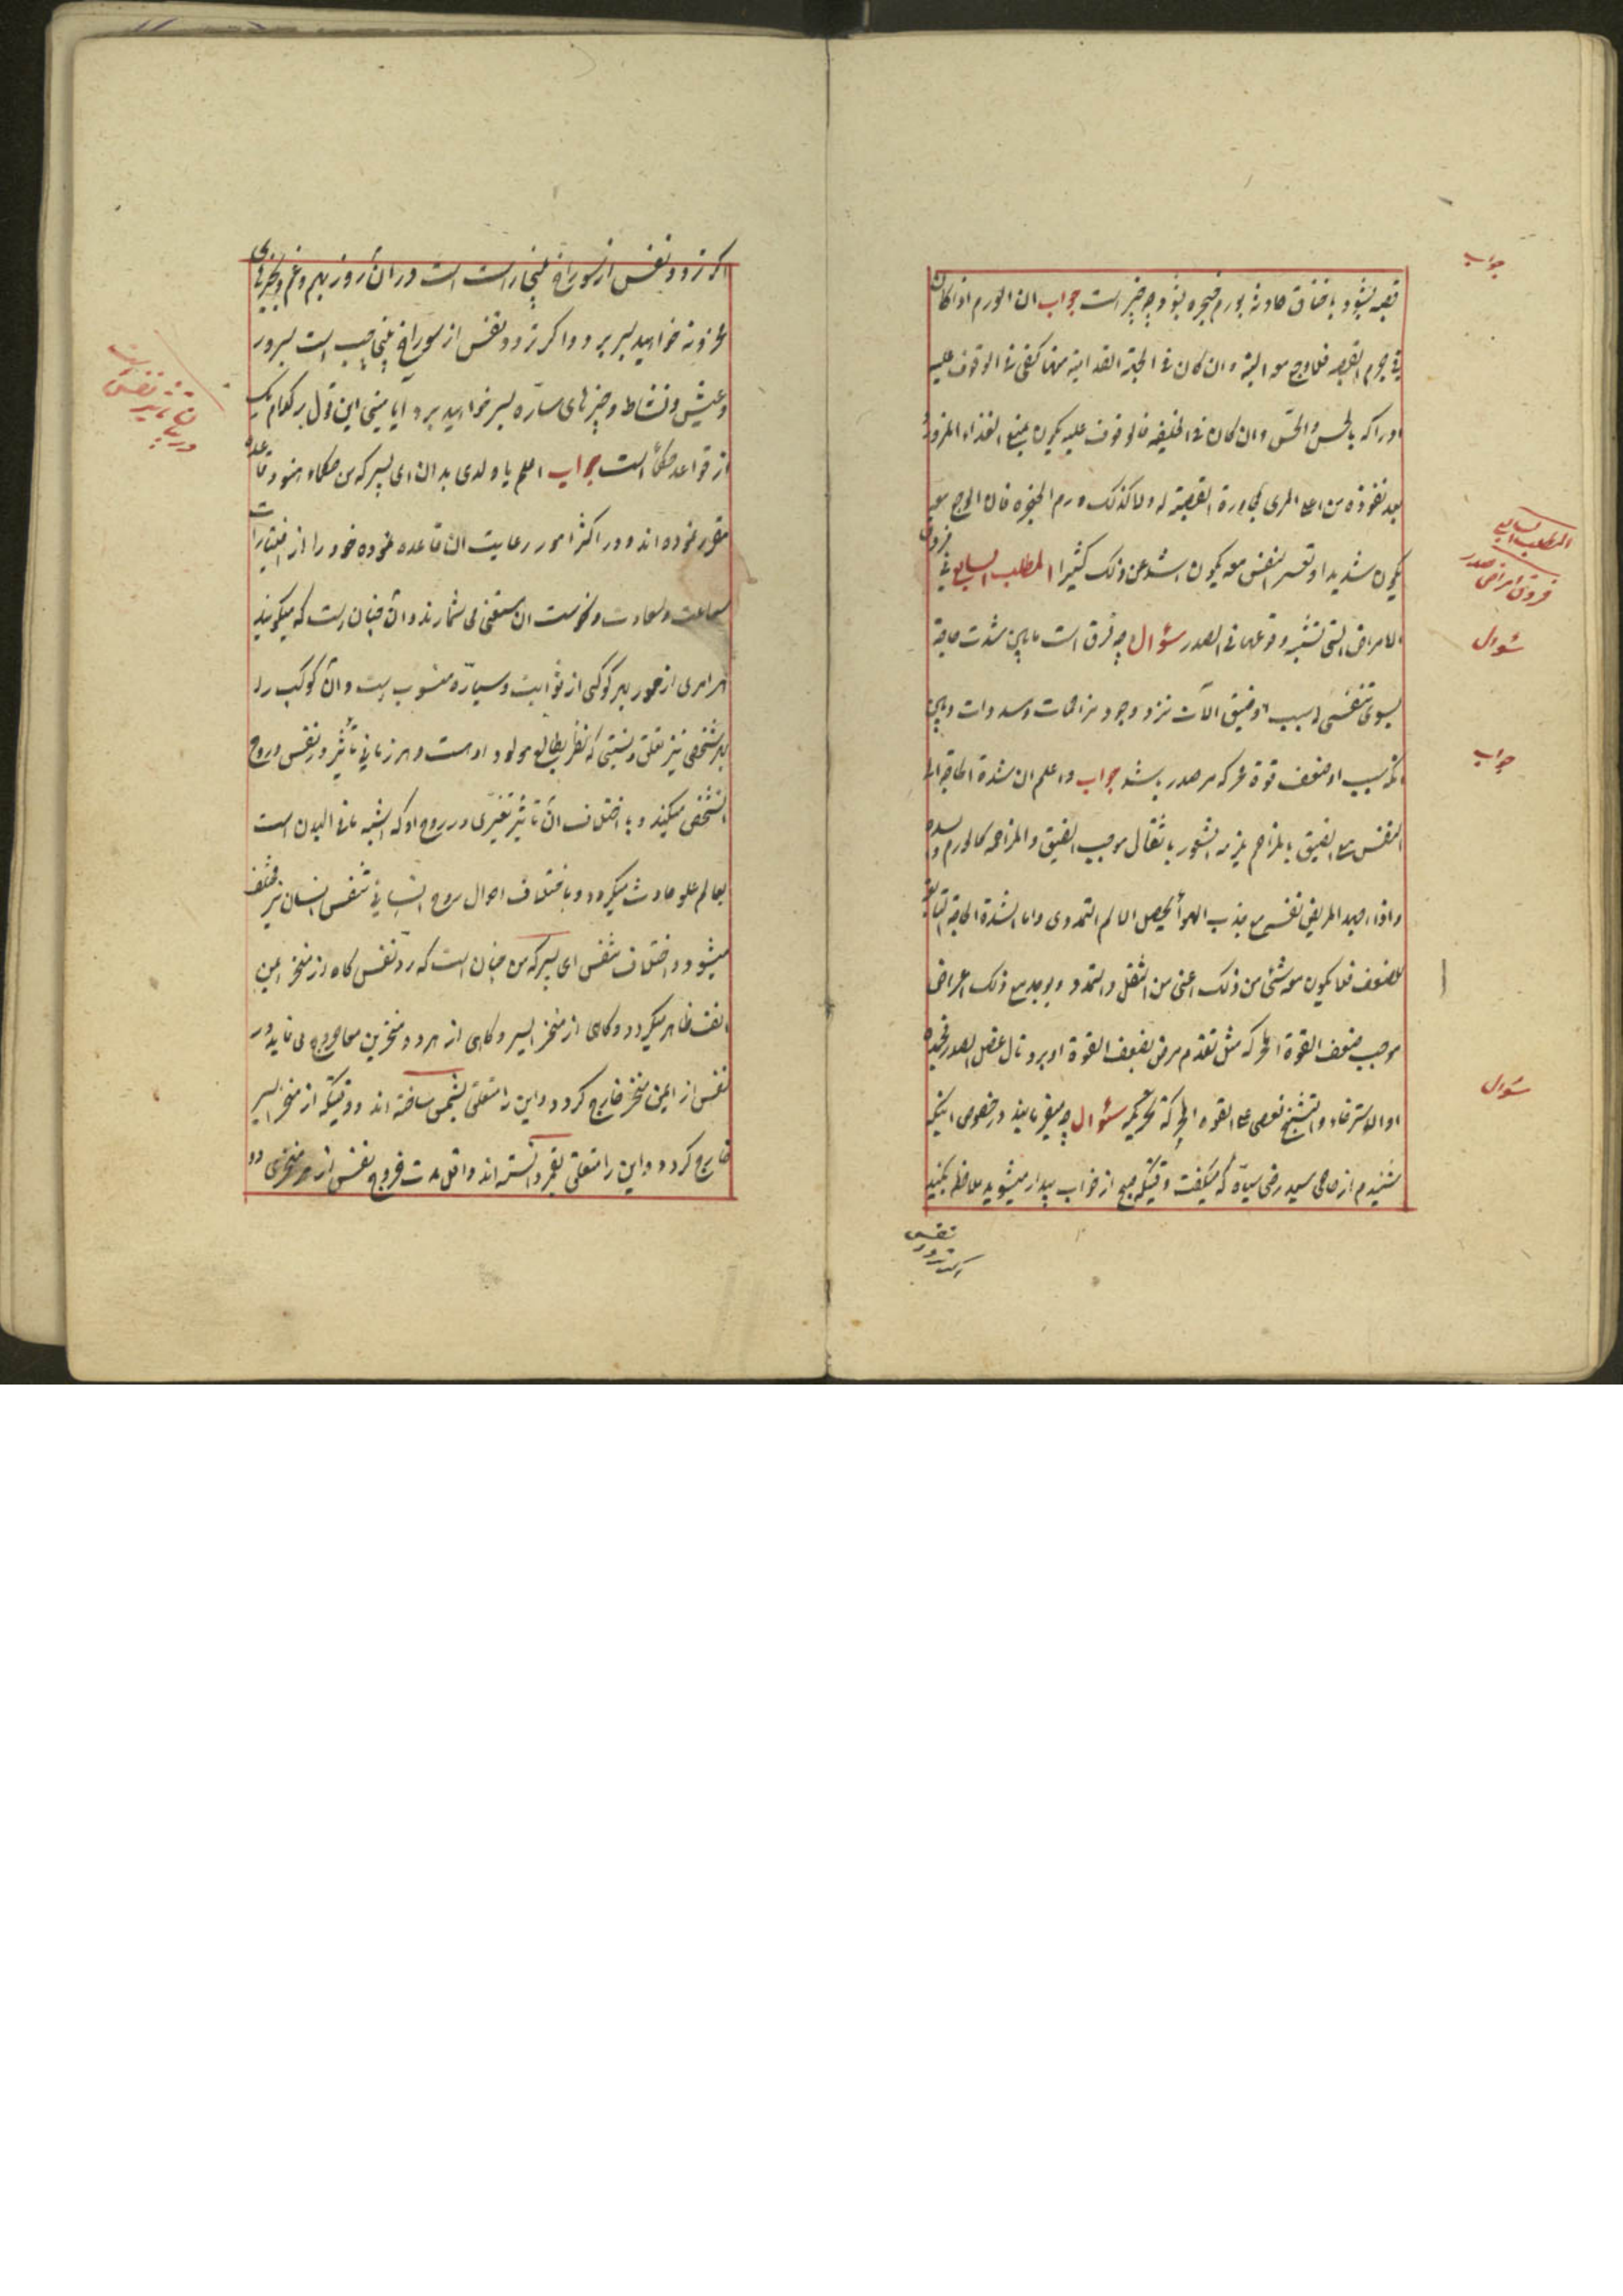 جواب
قصبه بشود با خناق حادثه بورم حنجره بنود چه چیز است جواب ان الورم اذا کان
فی جرم القصبه فلا وجع معه البته وان کان فی الجهة القدامیة منها کفی فی الوقوف علیه
ادراکه بالحس والجس وان کان فی الخلفیه فالوقوف علیه یکون بمنع الغذاء المزدرد
بعد نفوذه من اعلا المری لمجاورة القصبة له ولا کذلک ورم الحنجره فان الوجع معه
یکون شدیدا وتعسر النفس معه یکون اشد من ذلک کثیرا المطلب السابع فی فروق
المطلب السابع
فروق امراض صدر
الامراض التی تشتبه وقوعها فی الصدر سؤال چه فرق است مابین شدت حاجة
سؤال
بسوی تنفس بسبب ضیق الآت نزد وجود مزاحمات وسدادات و مابین
بسبب ضعف قوة محرکه مر صدر باشد جواب واعلم ان شدة الحاجة الی
جواب
التنفس مع الضیق بالمزاحم یلزمه الشعور باثقال موجب الضیق والمزاحمه کالورم والسده
واذا اجهد المریض نفسه مع جذب الهوأ یحصل الالم التمددی واما الشدة الحاجة التابعة
للضعف فلا یکون معه شئ من ذلک اعنی من الثقل والتمدد ویوجد مع ذلک اعراض
موجب ضعف القوة المحرکه مثل تقدم مرض یضعف القوة او برد نال عضل الصدر
او الاسترخاء والتشنج سؤال چه میفرمایند در خصوص اینکه
سؤال
شنیدم از حاجی سید رضی سیاه که میگفت وقتیکه صبح از خواب بیدار میشوید ملاحظه بکنید
اگر تردد نفس
اگر تردد نفس از سوراخ بینی راست است در ان روز بهم وغم وبچیزهای
محزونه خواهید بسر برد و اگر تردد نفس از سوراخ بینی چپ است بسرور
وعیش ونشاط وچیزهای سارّه بسر خواهید برد آیا مبنی این قول بر کدام یک
در بیان تاثیر نفس
از قواعد حکمأ است جواب اعلم یا ولدی بدان ای پسر که من حکماء هنود قاعده
مقرر نموده اند و در اکثر امور رعایت ان قاعده نموده خود را از اختیارات
ساعت وسعادت ونحوست ان مستغنی می شمارند وان چنان است که میگویند
هر امری از امور بهر کوکبی از ثوابت وسیاره منسوب است وان کوکب را
بهر شخصی نیز تعلق ونسبتی که نظر بطالع مولود اوست و هر زمانی تأثیر در نفس وروح
انشخص میکند و با اختلاف ان تأثیر تغییری در روح او که اشبه مافی البدن است
بعالم علو حادث میگردد و باختلاف احوال روح انسانی تنفس انسان نیز مختلف
میشود و اختلاف تنفس ای پسر که من چنان است که تردد نفس گاه از منخر ایمن
انف ظاهر میگردد وگاهی از منخر ایسر وگاهی از هر دو منخرین معا خروج می نماید ودر
نفس از ایمن منخر خارج گردد و این را متعلق بشمس ساخته اند و وقتیکه از منخر ایسر
خارج گردد واین را متعلق بقمر دانسته اند واقل مدت خروج نفس از هر منخری دو